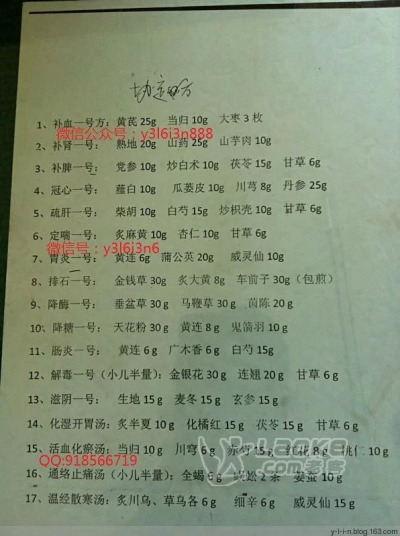 协定处方
1、补血一号方：黄芪 25g 当归 10g 大枣 3 枚
微信公众号：y3l6i3n888
2、补肾一号： 熟地 20g 山药 25g 山芋肉 10g
3、补脾一号： 党参 10g 炒白术 10g 茯苓 15g 甘草 6g
4、冠心一号： 薤白 10g 瓜蒌皮 10g 川芎 8g 丹参 25g
5、疏肝一号： 柴胡 10g 白芍 15g 炒枳壳 10g 甘草 6g
6、定喘一号： 炙麻黄 10g 杏仁 10g 甘草 6g
微信号：y3l6i3n6
7、胃炎一号： 黄连 6g 蒲公英 20g 威灵仙 10g
8、排石一号： 金钱草 30g 炙大黄 8g 车前子 30g（包煎）
9、降酶一号： 垂盆草 30 g 马鞭草 30 g 茵陈 20 g
10、降糖一号： 天花粉 30 g 黄连 8 g 鬼箭羽 10 g
11、肠炎一号： 黄连 6 g 广木香 6 g 白芍 15g
12、解毒一号（小儿半量）：金银花 30 g 连翘 20 g 甘草 6 g
13、滋阴一号： 生地 15 g 麦冬 15 g 玄参 15 g
14、化湿开胃汤：炙半夏 10 g 化橘红 15 g 茯苓 15 g 甘草 6 g
15、活血化瘀汤：当归 10 g 川芎 6 g 赤芍 15 g 红花 8 g 桃仁 10 g
QQ:918566719
16、通络止痛汤（小儿半量）：全蝎 6 g 2 条 10 g
17、温经散寒汤：炙川乌、草乌各 6 g 细辛 6 g 威灵仙 15 g
y-l-i-n.blog.163.com